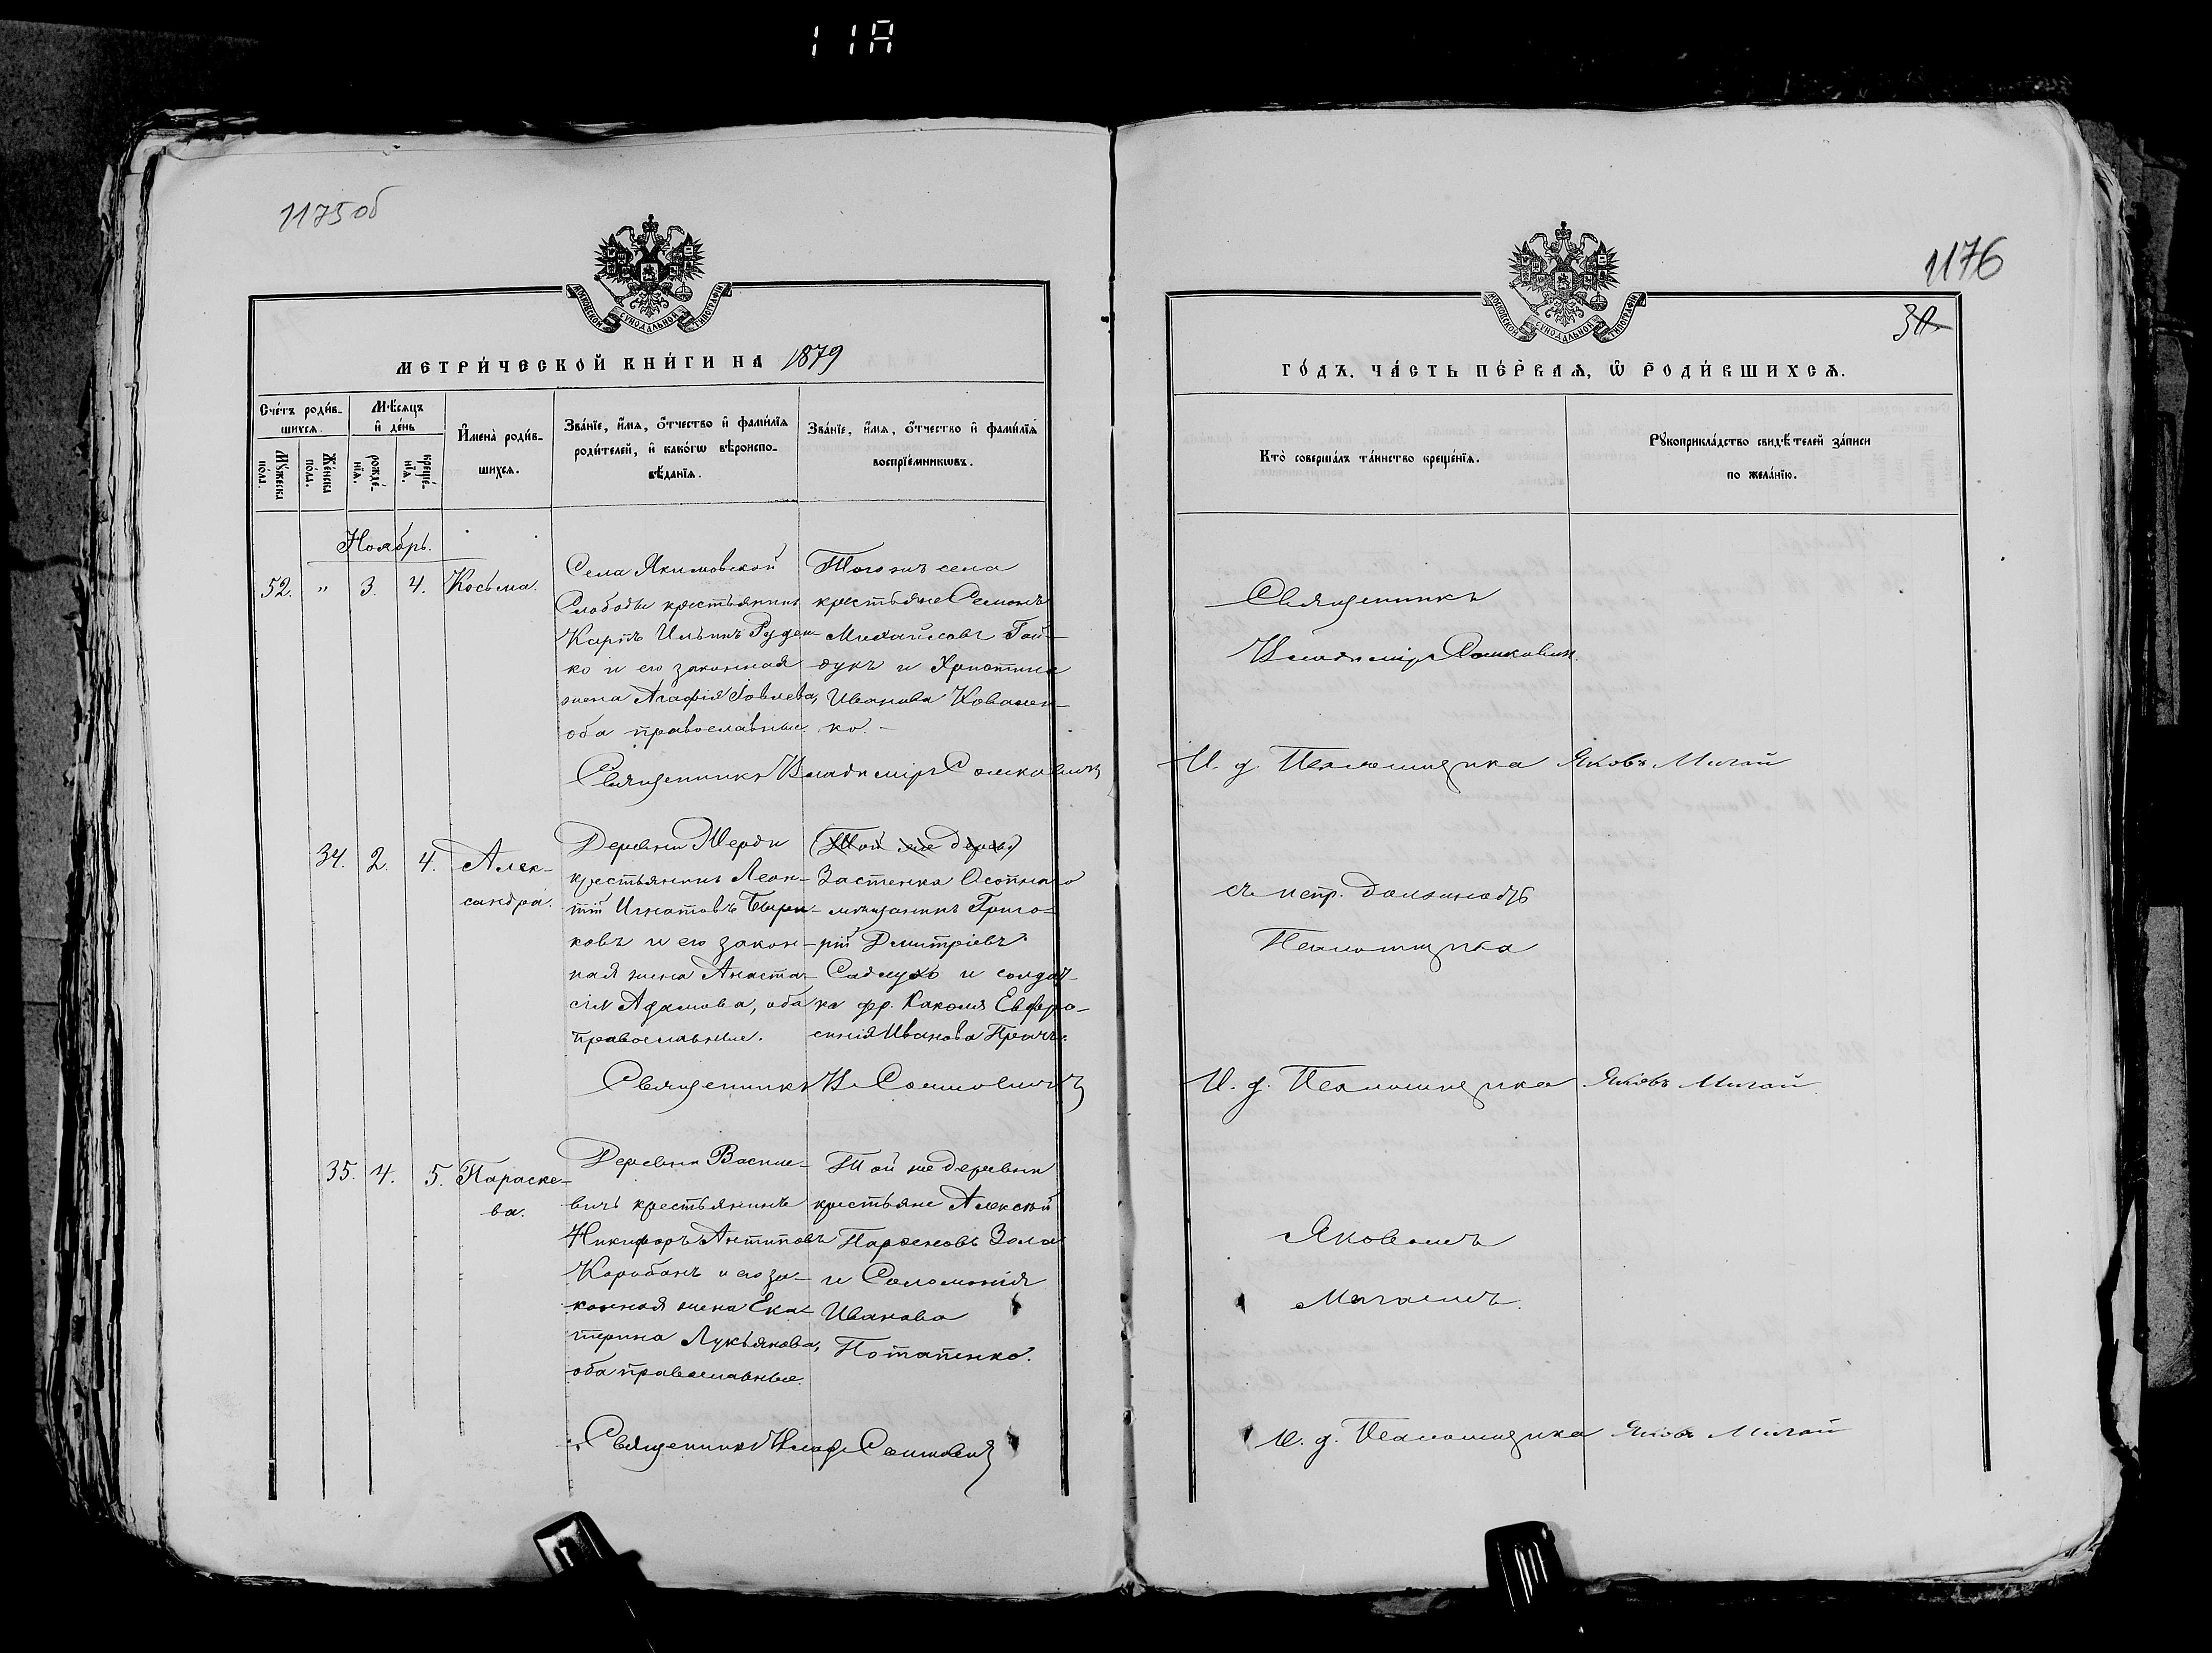 11A
1175об
МОСКОВСКОЙ СУНОДАЛЬНОЙ ТИПОГРАФІИ
МЕТРИ́ЧЕСКОЙ КНИ́ГИ НА 1879
Сче́тъ роди́в-
шихся.
Мѣ́сяцъ
и҆ де́нь
Му́жеска
по́ла.
Же́нска
по́ла.
рожде́-
нїѧ.
креще́-
нїѧ.
И҆мена̀ роди́в-
шихсѧ.
Зва́нїе, и҆́мѧ, ѻ҆́тчество и҆ фами́лїѧ
роди́телей, и҆ како́гѡ вѣроиспо-
вѣ́данїѧ.
Зва́нїе, и҆́мѧ, ѻ҆́тчество и҆ фами́лїѧ
воспрїе́мникѡвъ.
Ноябрь.
52. " 3. 4. Косьма.
Села Якимовской
Слободы крестьянинъ
Карпъ Ильинъ Руден-
ко и его законная
жена Агафія Іовлева,
оба православные.
Того жъ села
крестьяне Семенъ
Михайловъ Гай-
дукъ и Христина
Иванова Ковален-
ко. -
Священникъ Владиміръ Сошковичъ
34. 2. 4. Алек-
сандра.
Деревни Мерди
крестьянинъ Леон-
тій Игнатовъ Бири-
ковъ и его закон-
ная жена Анаста-
сія Адамова, оба
православные.
(Той же деревни)
Застенка Осотнаго
мѣщанинъ Григо-
рій Дмитріевъ
и солдат-
ка Евфро-
синія Иванова
Священникъ Вл Сошковичъ
35. 4. 5. Параске-
ва.
Деревни Василе-
вичъ крестьянинъ
Никифоръ Антиповъ
Карабанъ и его за-
конная жена Ека-
терина Лукьянова,
оба православные.
Той же деревни
крестьяне Алексѣй
Парѳеновъ Зола
и Соломонія
Иванова
Потапенко.
Священникъ Влад Сошковичъ
1176
МОСКОВСКОЙ СУНОДАЛЬНОЙ ТИПОГРАФІИ
ГО́ДЪ. ЧА́СТЬ ПЕ́РВАѦ, Ѡ҆ РОДИ́ВШИХСѦ.
Кто̀ соверша́лъ та́инство креще́нїѧ.
Рꙋкоприкла́дство свидѣ́телей за́писи
по жела́нїю.
Священникъ
Владиміръ Сошковичъ.
И. д. Псаломщика Яковъ Мигай
съ испр. должность
Псаломщика
И. д. Псаломщика Яковъ Мигай
Яковомъ
Мигаемъ.
И. д. Псаломщика Яковъ Мигай